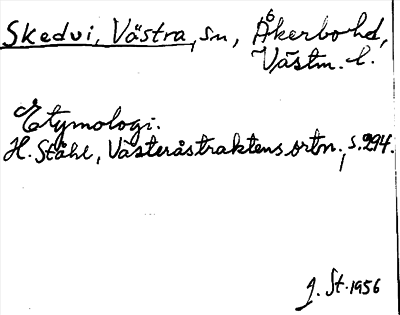 Skedvi, Västra, sn, Åkerbo hd,
Västm. l.
Etymologi.
H. Ståhl, Västeråstraktens ortn., s. 294.
J. St. 1956